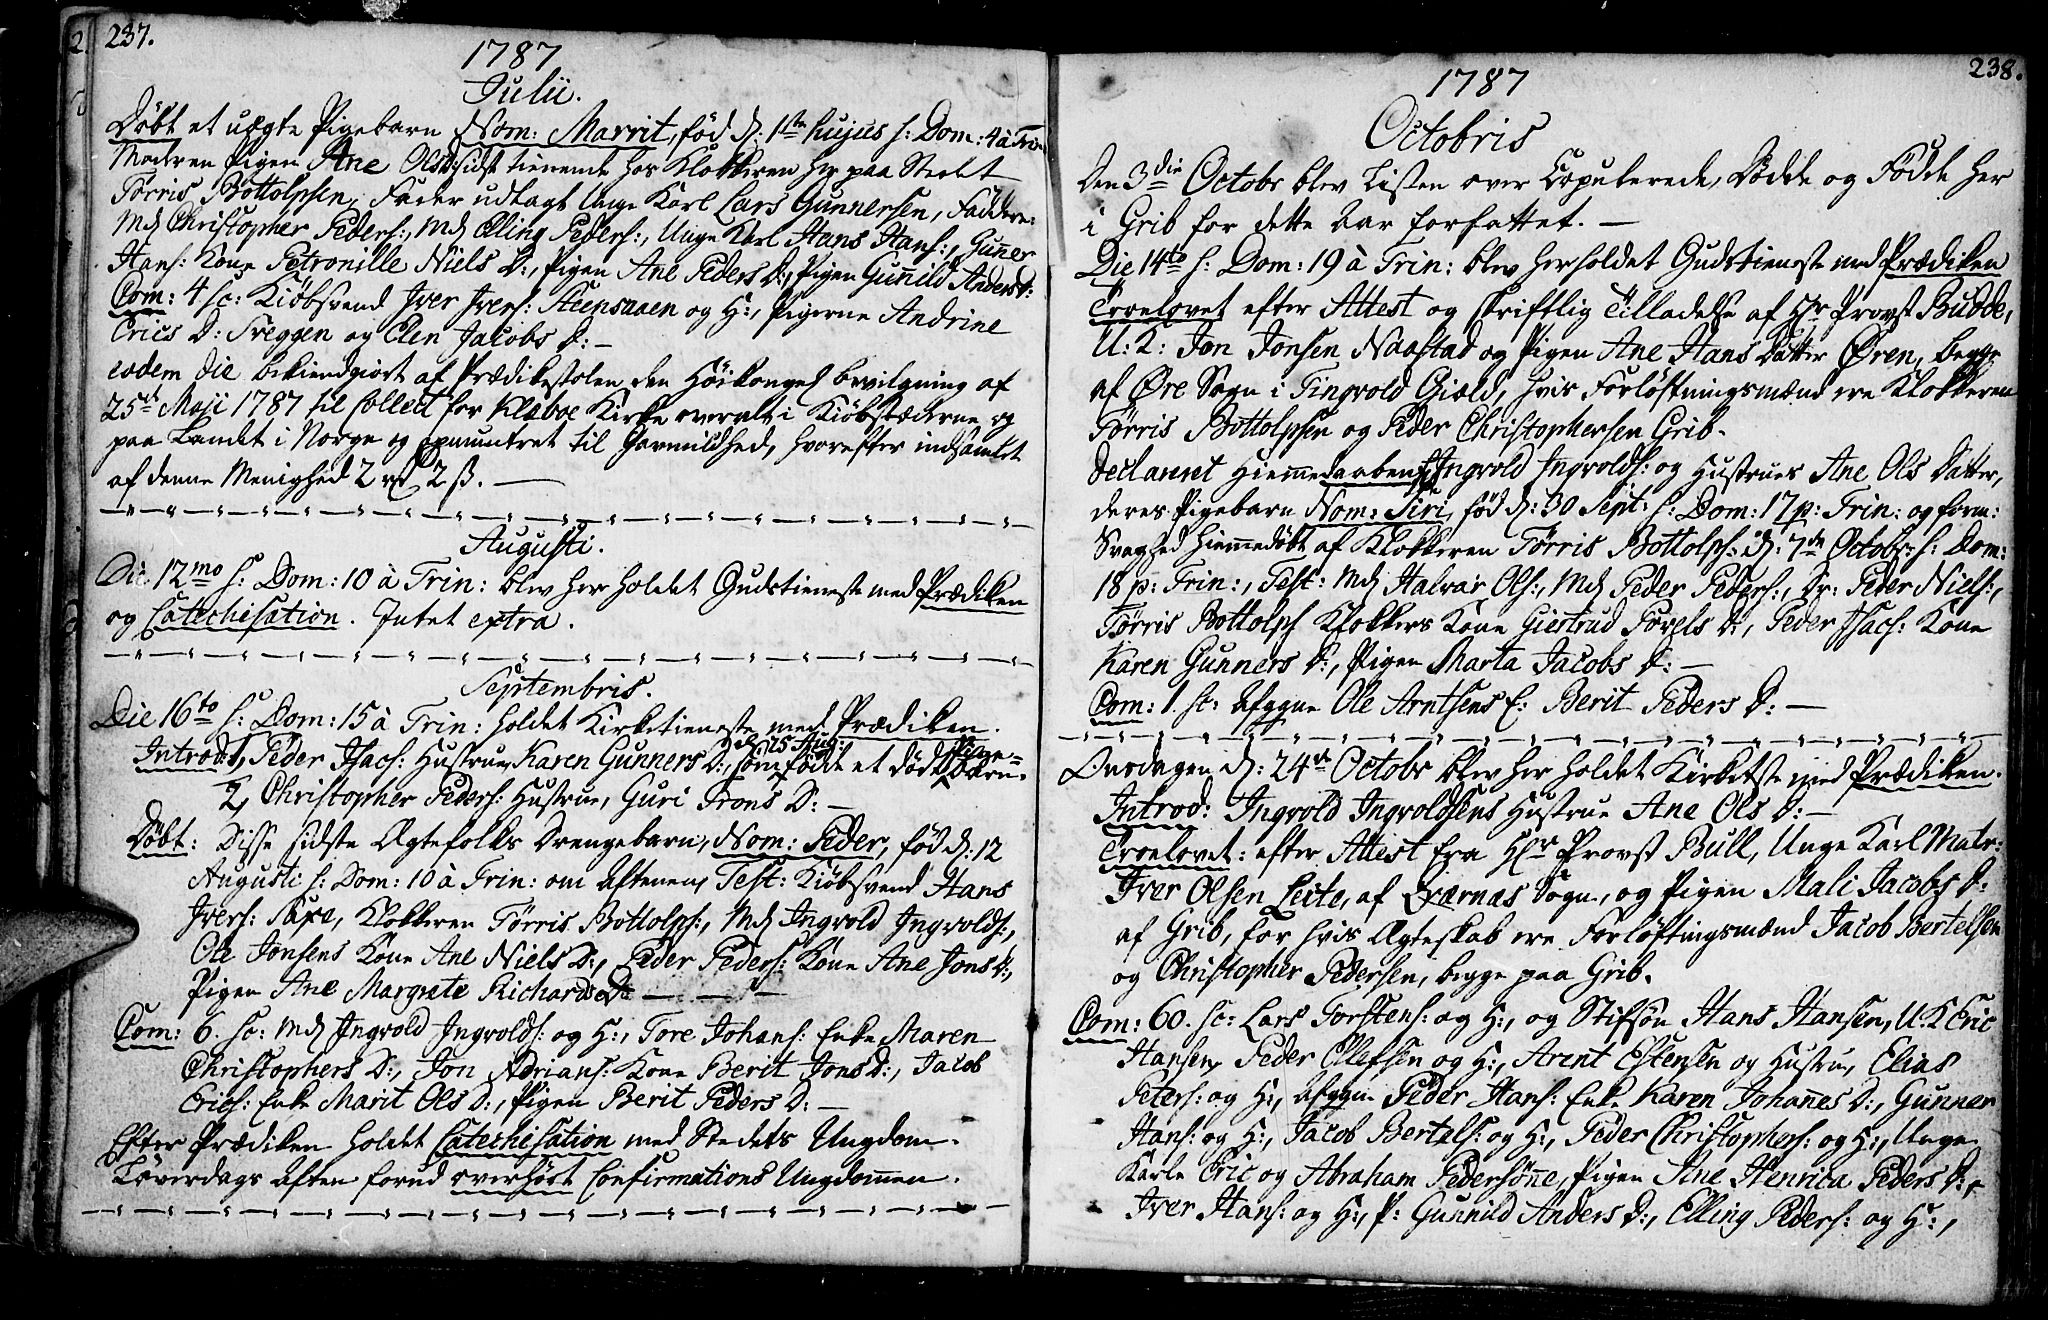 237.
1787
Julii.
Döbt et uægte Pigebarn Nom: Marrit, fød d: 1ste hujus s: Dom: 4 à Trin:
Modren Pigen Ane Olsd: sidst tienende hos Klokkeren her paa Stedet
Törris Bottolphsen, Fader udlagt Unge Karl Lars Gunnersen, Faddere:
Md Christopher Peders:, Md Elling Peders:, Unge Karl Hans Hans:, Gunner
Hans: Kone Petronille Niels D:, Pigen Ane Peders D:, Pigen Gunild Anders D:
Com: 4 sc: Kiöbsvend Iver Ivers: Steensaaen og H:, Pigerne Andrine
Erics D: Sveggen og Elen Jacobs D: —
eodem die bekiendgiort af Prædikestolen den Höikongel bevilgning af
25de Maji 1787 til Collect for Klæboe Kirke overalt i Kiöbstæderne og
paa Landet i Norge og opmuntret til Gavmildhed, hvorefter indsamlet
af denne Menighed 2 rd 2 ß. —
Augusti.
Die 12mo s: Dom: 10 à Trin: blev her holdet Gudstieneste med Prædiken
og Catechisation. Intet extra.
Septembris.
Die 16to s: Dom: 15 à Trin: holdet Kirketieneste med Prædiken.
Introd: 1, Peder Isacs: Hustrue, Karen Gunners D:, som d: 25 Aug: födt et död Pige-Barn.
2, Christopher Peders: Hustrue, Guri Trons D: —
Döbt: Disse sidste Ægtefolks Drengebarn, Nom: Peder, fød d: 12
Augusti s: Dom: 10 à Trin: om Aftenen, Test: Kiöbsvend Hans
Ivers: Saxe, Klokkeren Törris Bottolphs:, Md Ingvold Ingvolds:,
Ole Jonsens Kone Ane Niels D:, Peder Peders: Kone Ane Jons D:,
Pigen Ane Margrete Richards D: — — —
Com: 6. sc: Md Ingvold Ingvolds: og H:, Tore Johans: Enke Maren
Christophers D:, Jon Adrians: Kone Berit Jons D:, Jacob
Erics: Enke Marit Ols D:, Pigen Berit Peders D: —
Efter Prædiken holdet Catechisation med Stedets Ungdom.
Löverdags Aften forud overhört Confirmations Ungdommen.
238.
1787
Octobris
Den 3die Octobr blev Listen over Copulerede, Dödde og Födde her
i Grib for dette Aar forfattet. —
Die 14to s: Dom: 19 à Trin: blev her holdet Gudstieneste med Prædiken
Troelovet efter Attest og skriftlig Tilladelse af Hr Provst Budde,
U: K: Jon Jonsen Naastad og Pigen Ane Hans Datter Øren, begge
af Øre Sogn i Tingvold Giæld, hvis Forløftningsmænd ere Klokkeren
Törris Bottolphsen og Peder Christophersen Grib.
Declareret Hiemmedaaben Ingvold Ingvolds: og Hustrues Ane Ols Datter,
deres Pigebarn Nom: Siri, fød d: 30 Sept: s: Dom: 17 p: Trin: og form:
Svaghed hiemmedöbt af Klokkeren Törris Bottolphs: d: 7de Octobr: s: Dom:
18 p: Trin:, Test: Md Halvar Ols:, Md Peder Peders:, Dr: Peder Niels:,
Törris Bottolphs Klokkers Kone Giertrud Povels D:, Peder Isacs: Kone
Karen Gunners D:, Pigen Marta Jacobs D: —
Com: 1. sc: Afggne Ole Arntsens E: Berit Peders D: —
Onsdagen d: 24de Octobr blev her holdet Kirketste med Prædiken.
Introd: Ingvold Ingvoldsens Hustrue Ane Ols D: —
Troelovet: efter Attest fra Hr Provst Bull, Unge Karl Matr:
Iver Olsen Leite, af Qværnæs Sogn, og Pigen Mali Jacobs D:
af Grib, for hvis Ægteskab ere Forløftingsmænd Jacob Bertelsen
og Christopher Pedersen, begge paa Grib.
Com: 60. sc: Lars Torstens: og H:, og Stifsön Hans Hansen, U. K Eric
Hansen, Peder Ellefsen og H:, Arent Estensen og Hustru, Elias
Peters: og H:, Afggne Peder Hans: Enk: Karen Johannes D:, Gunner
Hans: og H:, Jacob Bertels: og H:, Peder Christophers: og H:, Unge
Karle Eric og Abraham Pedersönne, Pigen Ane Henrica Peders D:,
Iver Hans: og H:, P: Gunnild Anders D:, Elling Peders: og H:,